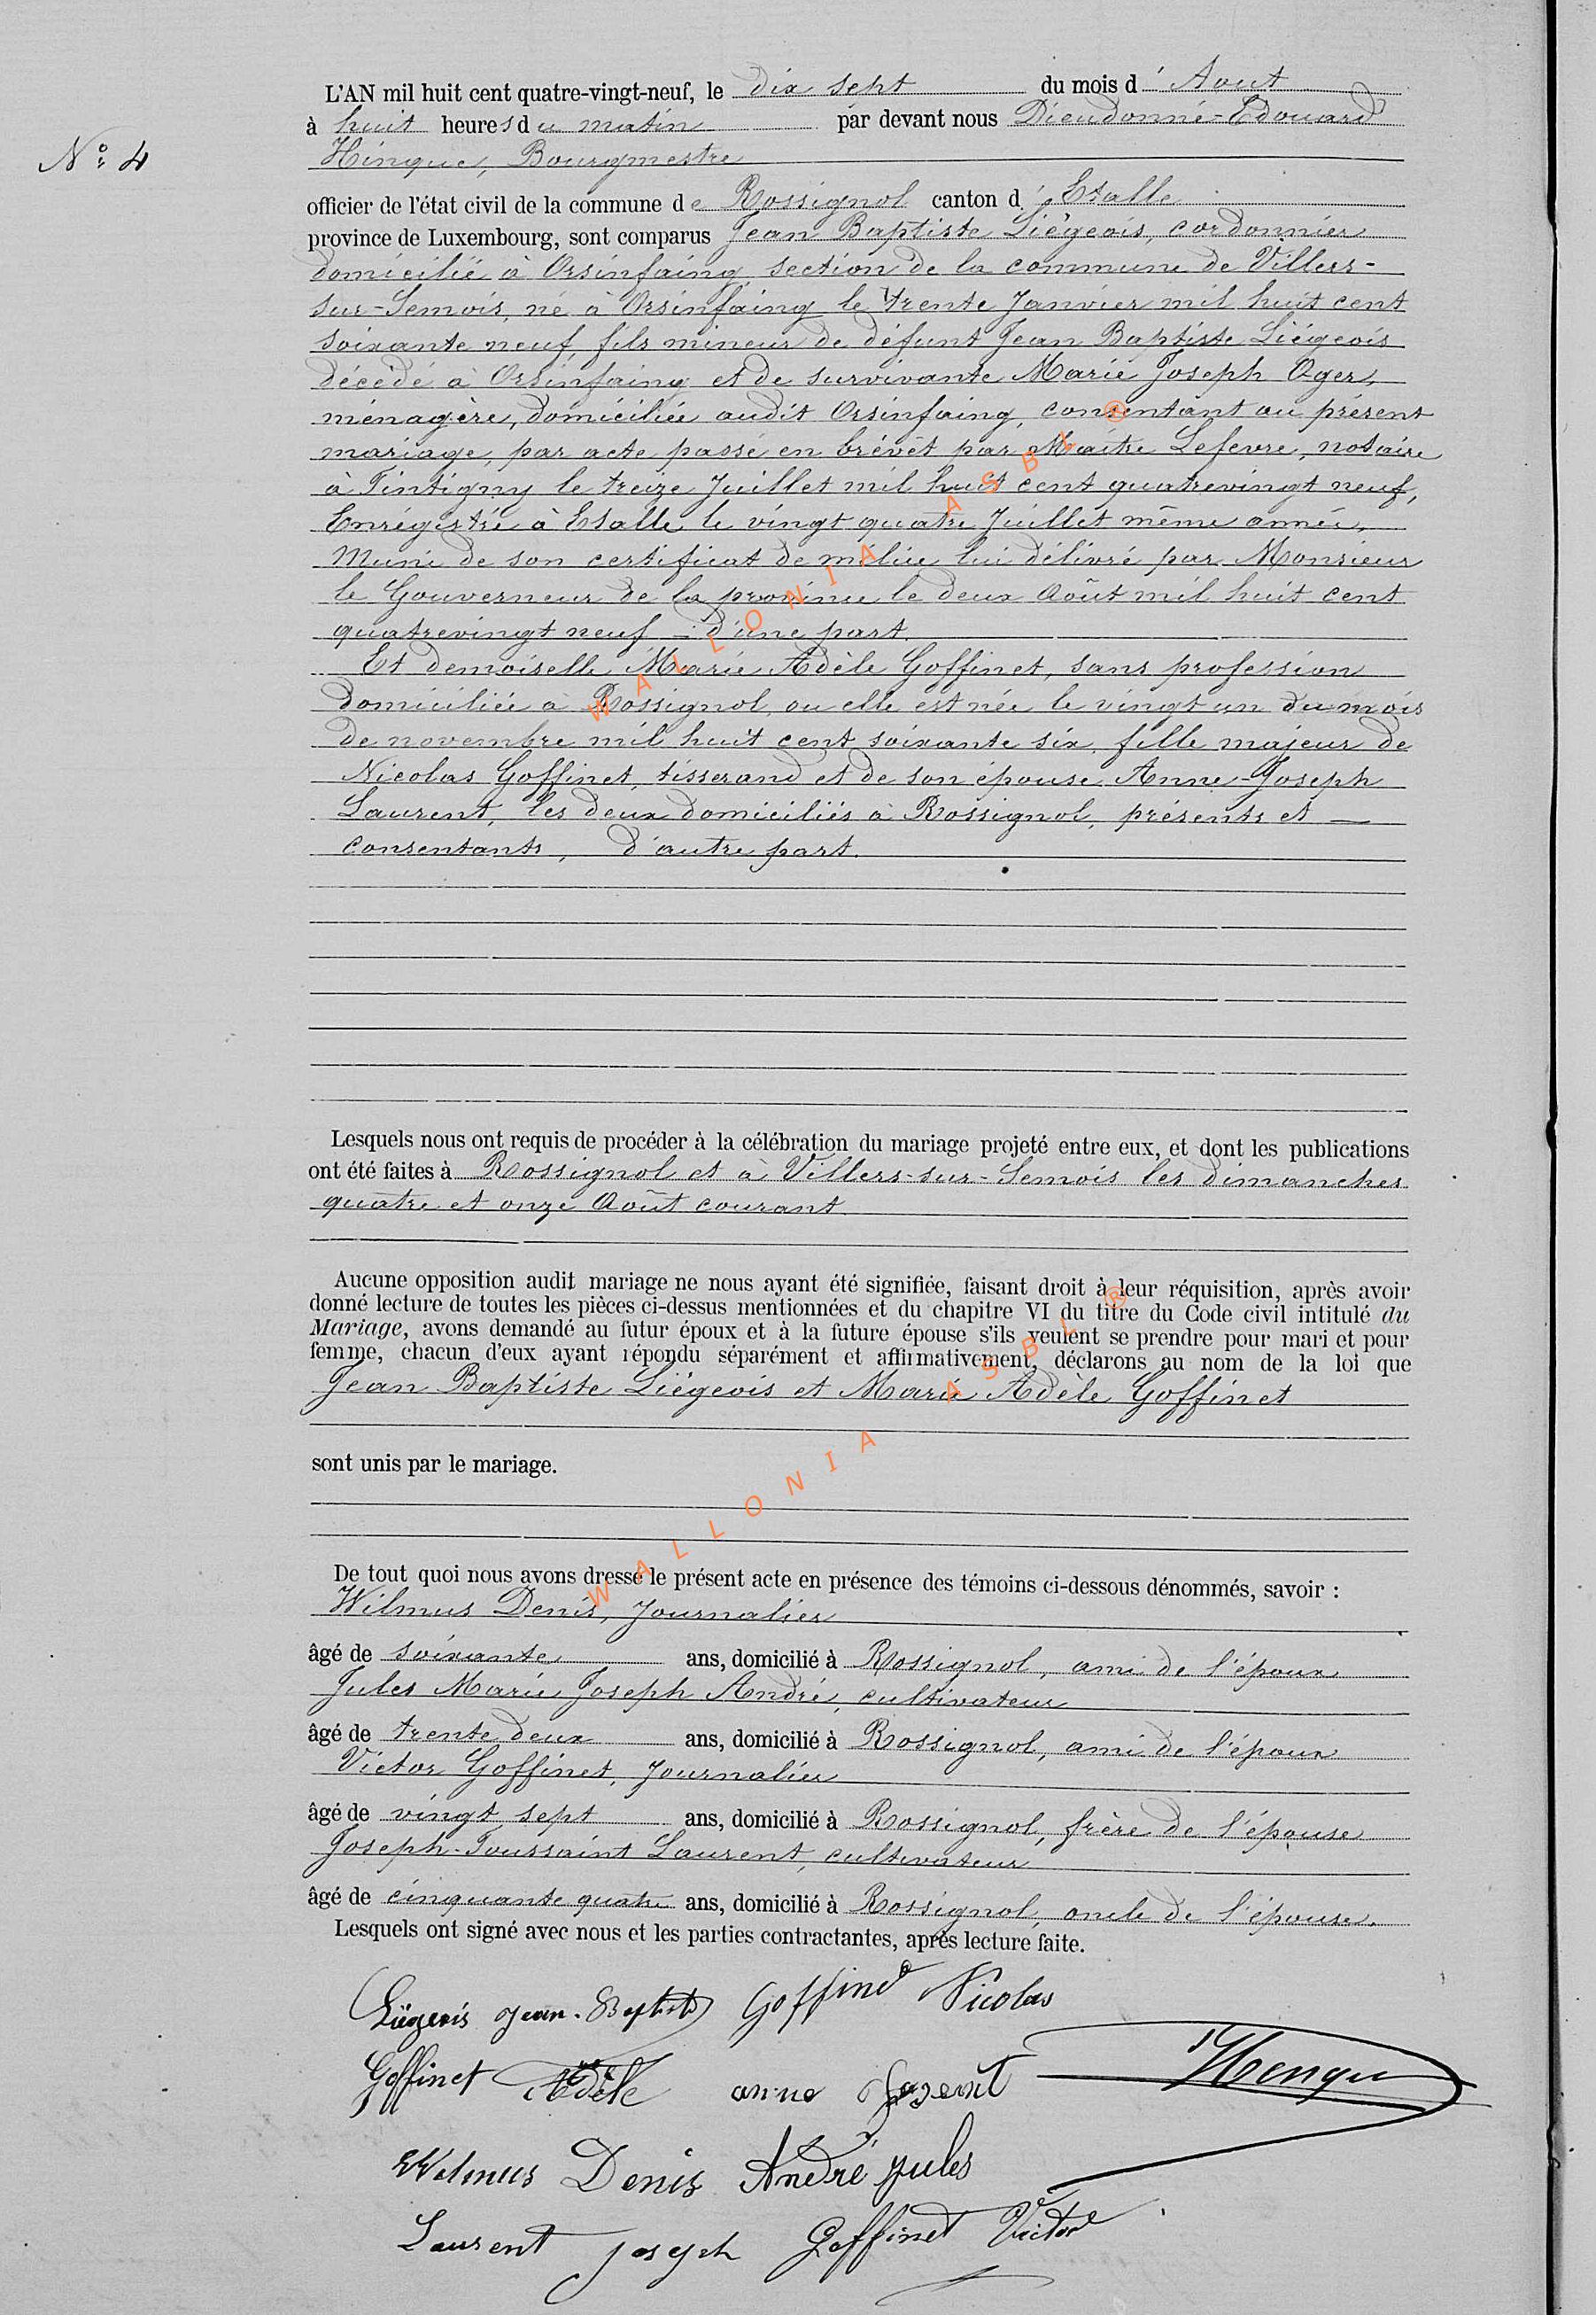 L'AN mil huit cent quatre-vingt-neuf, le dix sept du mois d'Aout
à huit heures du matin par devant nous Dieudonné-Edouard
N° 4
Hinque, Bourgmestre
officier de l'état civil de la commune de Rossignol canton d'Etalle
province de Luxembourg, sont comparus Jean Baptiste Liégeois, cordonnier
domicilié à Orsinfaing section de la commune de Villers-
sur-Semois, né à Orsinfaing le trente Janvier mil huit cent
soixante neuf, fils mineur de défunt Jean Baptiste Liégeois
décédé à Orsinfaing et de survivante Marie Joseph Oger,
ménagère, domiciliée audit Orsinfaing, consentant au présent
mariage, par acte passé en brévêt par Maître Lefevre, notaire
à Tintigny le treize Juillet mil huit cent quatrevingt neuf,
Enrégistré à Etalle le vingt quatre Juillet même année,
Muni de son certificat de milice lui délivré par Monsieur
le Gouverneur de la province le deux Août mil huit cent
quatrevingt neuf - d'une part.
Et demoiselle Marie Adèle Goffinet, sans profession
domiciliée à Rossignol, ou elle est née le vingt un du mois
de novembre mil huit cent soixante six, fille majeur de
Nicolas Goffinet, tisserand et de son épouse Anne-Joseph
Laurent, les deux domiciliés à Rossignol, présents et —
consentants, d'autre part.
Lesquels nous ont requis de procéder à la célébration du mariage projeté entre eux, et dont les publications
ont été faites à Rossignol et à Villers-sur-Semois les dimanches
quatre et onze Août courant.
Aucune opposition audit mariage ne nous ayant été signifiée, faisant droit à leur réquisition, après avoir
donné lecture de toutes les pièces ci-dessus mentionnées et du chapitre VI du titre du Code civil intitulé du
Mariage, avons demandé au futur époux et à la future épouse s'ils veulent se prendre pour mari et pour
femme, chacun d'eux ayant répondu séparément et affirmativement, déclarons au nom de la loi que
Jean Baptiste Liégeois et Marie Adèle Goffinet
sont unis par le mariage.
De tout quoi nous avons dressé le présent acte en présence des témoins ci-dessous dénommés, savoir :
Wilmus Denis, Journalier
âgé de soixante ans, domicilié à Rossignol, ami de l'époux
Jules Marie Joseph André, cultivateur
âgé de trente deux ans, domicilié à Rossignol, ami de l'époux
Victor Goffinet, Journalier
âgé de vingt sept ans, domicilié à Rossignol, frère de l'épouse
Joseph-Toussaint Laurent, cultivateur
âgé de cinquante quatre ans, domicilié à Rossignol, oncle de l'épouse.
Lesquels ont signé avec nous et les parties contractantes, après lecture faite.
Liégeois Jean-Baptiste Goffinet Nicolas
Goffinet Adèle anne Hinque
Wilmus Denis André Jules
Laurent Joseph Goffinet Victor
WALLONIA ASBL ®
WALLONIA ASBL ®